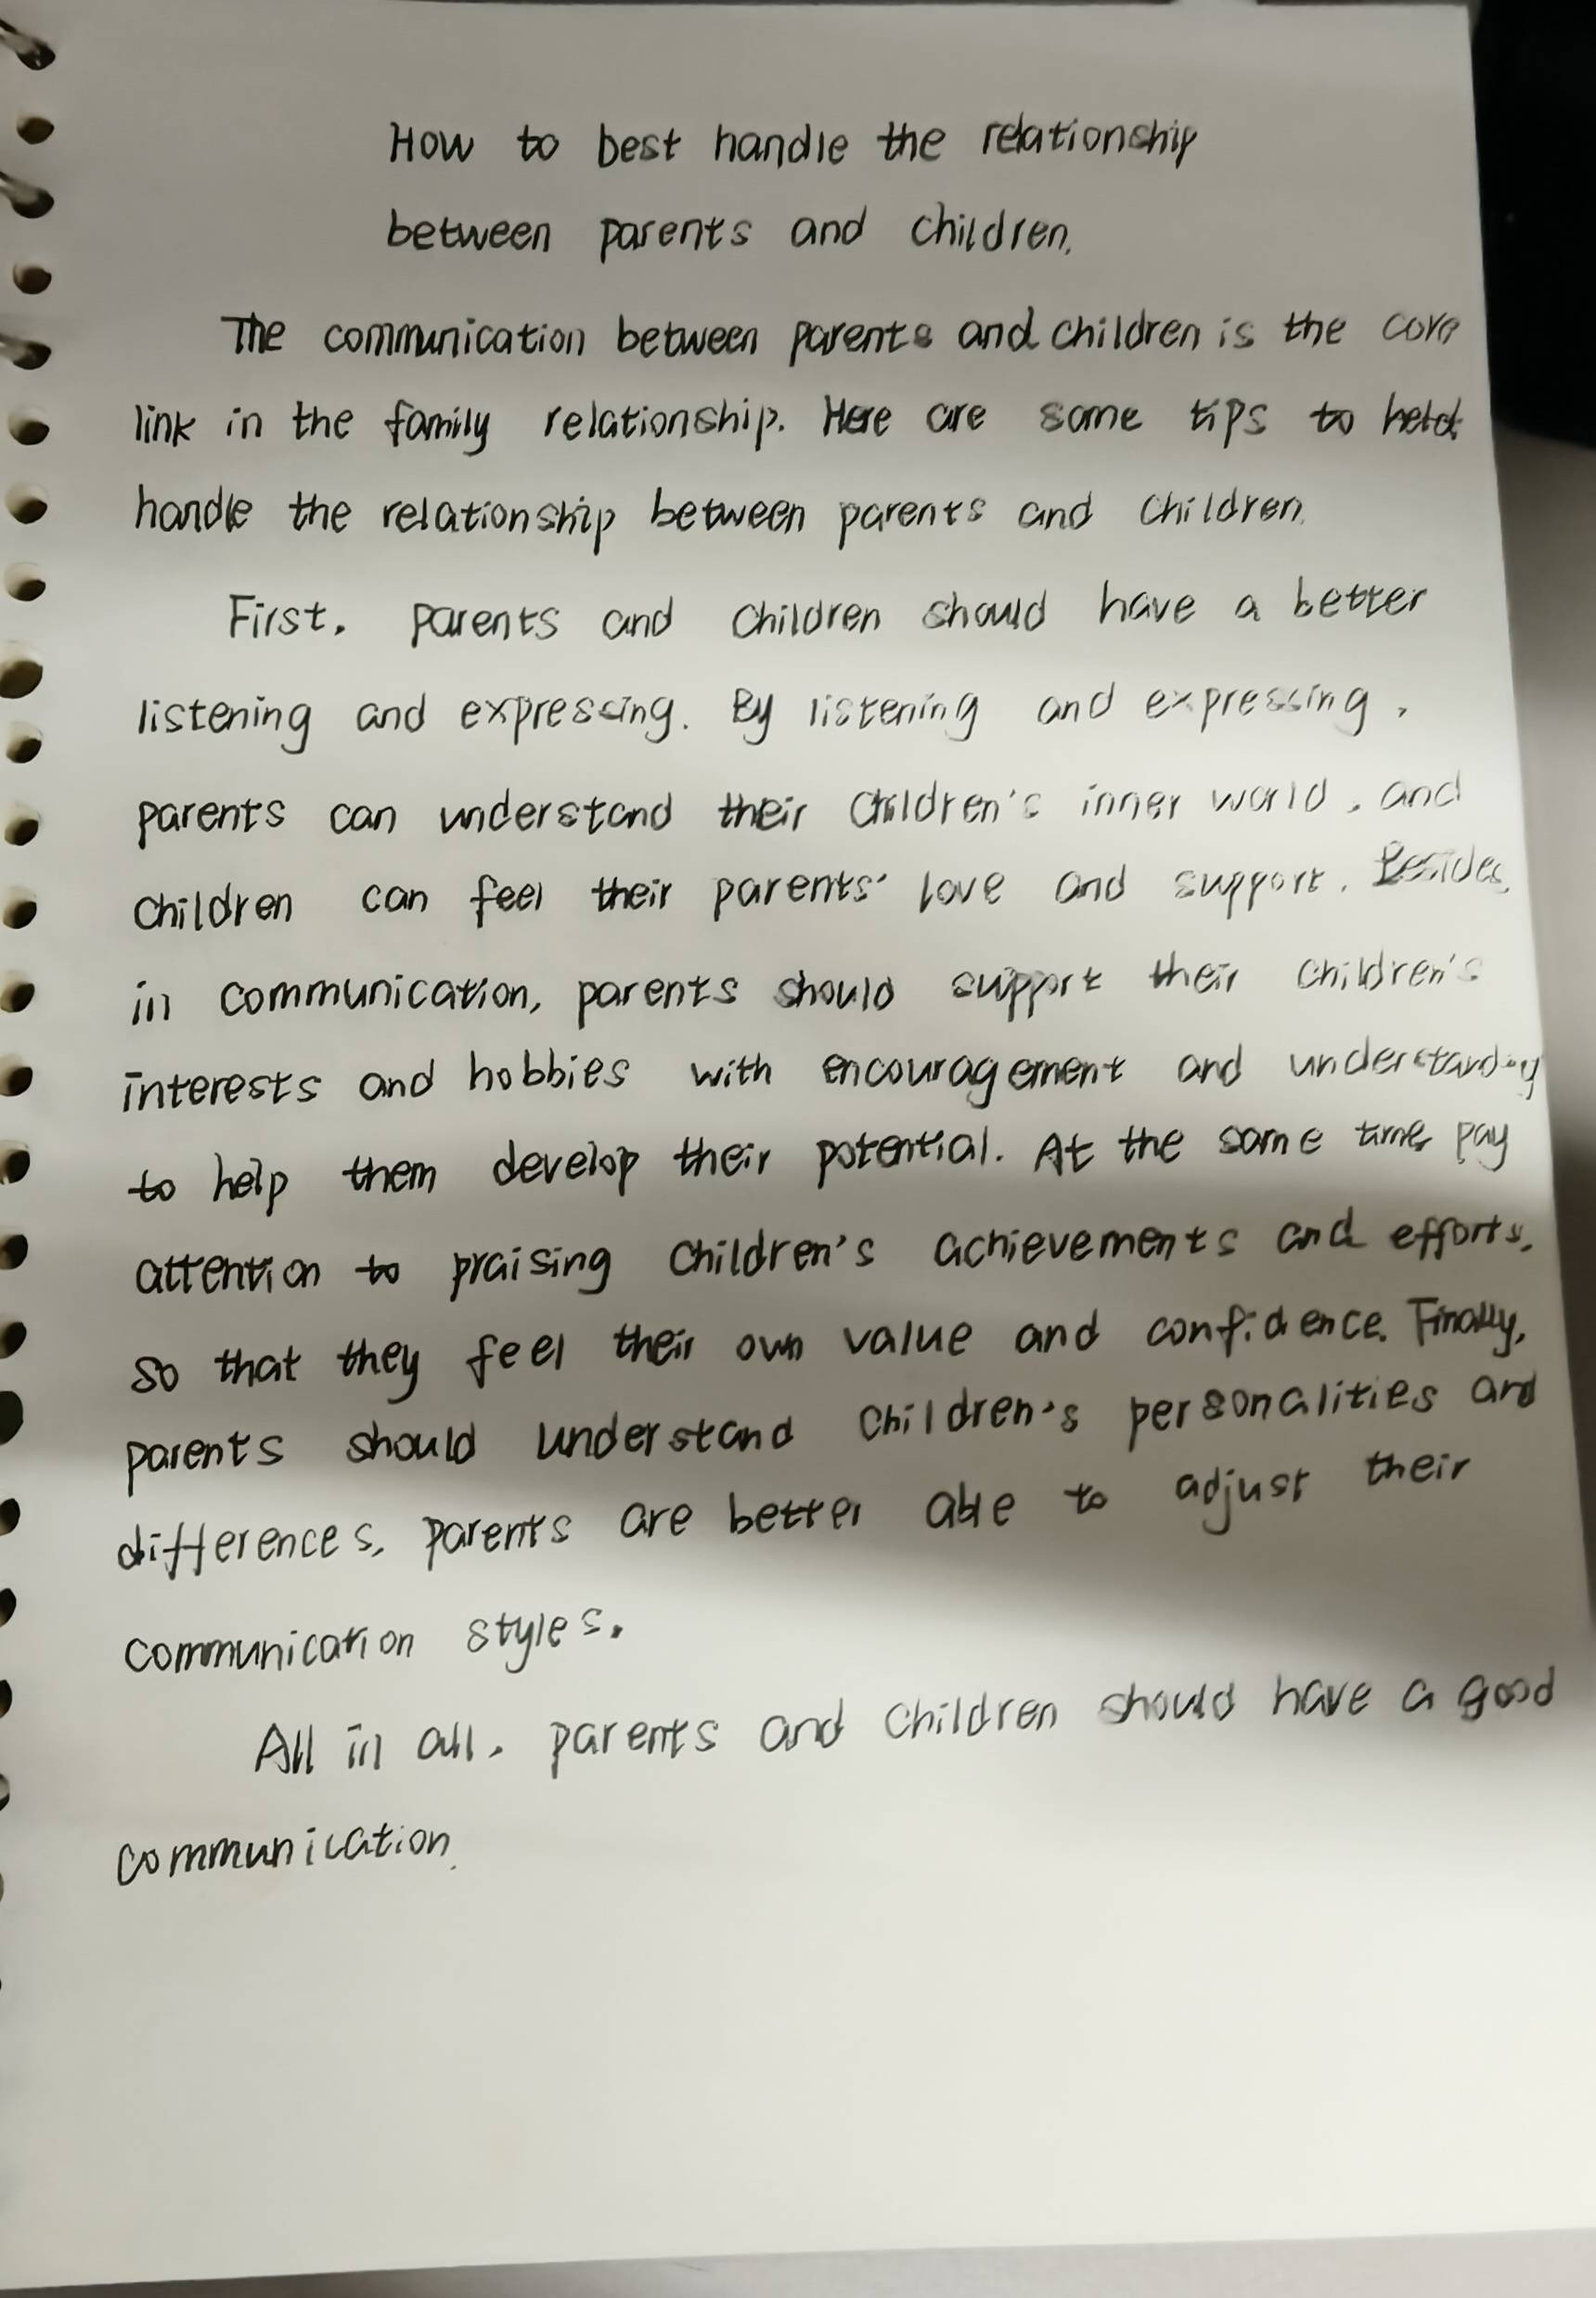 How to best handle the relationship
between parents and children.
The communication between parents and children is the core
link in the family relationship. Here are some tips to
handle the relationship between parents and children.
First. parents and children should have a better
listening and expressing. By listening and expressing,
parents can understand their children's inner world, and
children can feel their parents' love and support. Besides,
in communication, parents should support their children's
interests and hobbies with encouragement and understanding
to help them develop their potential. At the same time, pay
attention to praising children's achievements and efforts,
so that they feel their own value and confidence. Finally,
parents should understand children's personalities and
differences, parents are better able to adjust their
communication styles.
All in all, parents and children should have a good
communication.